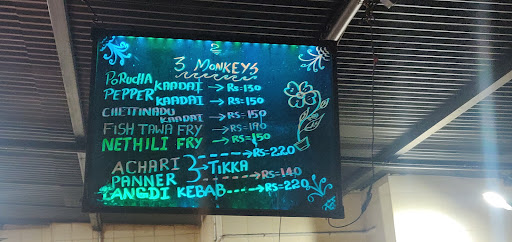 3 MONKEYS
PORUCHA KAADAI → RS=130
PEPPER KAADAI → RS=150
CHETTINADU KAADAI → RS=150
FISH TAWA FRY → RS=190
NETHILI FRY → RS=150
ACHARI → RS=220
TIKKA
PANNER → RS=140
LANGDI KEBAB → RS=220